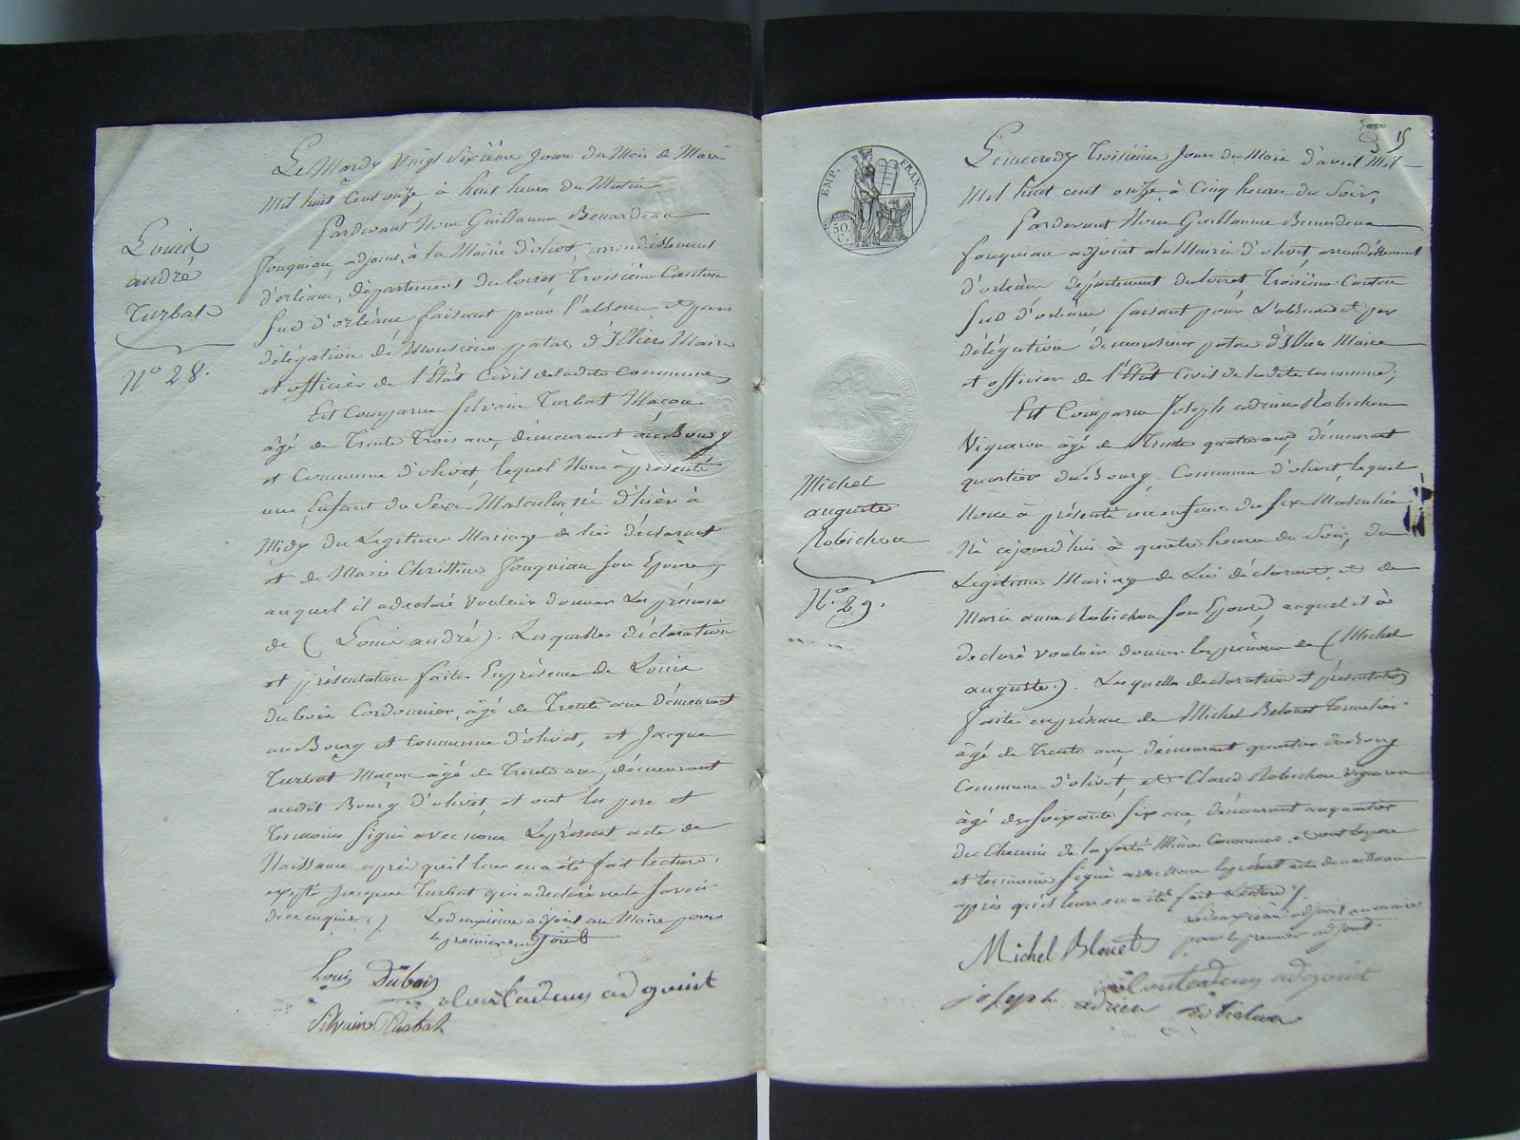 Louis
andré
Turbat
N° 28.
Le Mardy Vingt Sixième Jour du Mois de Mars
Mil huit Cent onze, à huit heures du Matin
Pardevant Nous Guillaume Benardeau
Fouquiau, adjoint, à la Mairie d'olivet, arrondissement
d'orléans, département du loiret Troisième Canton
Sud d'orléans faisant pour l'absence et par
délégation de Monsieur patas d'Illiers Maire
et officier de l'Etat Civil de la dite Commune
Est Comparu Silvain Turbat Maçon
âgé de Trente Trois ans, demeurant au Bourg
et Commune d'olivet, lequel Nous à présenté
un Enfant du Sexe Masculin, né d'hier à
Midy du Légitime Mariage de lui déclarant
et de Marie Christine Fouquiau son Epouse,
auquel il a déclaré vouloir donner Les prénoms
de (Louis andré). Lesquelles déclaration
et présentation faites En présence de Louis
Dubois Cordonnier, âgé de Trente ans demeurant
au Bourg et Commune d'olivet, et Jacque
Turbat Maçon âgé de Trente ans, demeurant
audit Bourg d'olivet, et ont les pere et
Temoins Signé avec nous Le présent acte de
Naissance après qu'il leur en a été fait lecture,
excepté Jacques Turbat qui a déclaré ne le savoir
de ce enquis. Le deuxième adjoint au Maire pour
le premier adjoint
Louis Dubois
adjoint
Silvain Turbat
15
EMP. FRAN.
50 C.
Michel
auguste
Robichon
N°. 29.
Le mercredy Troisième Jour du Mois d'avril Mil
Mil huit cent onze à Cinq heures du Soir,
Pardevant Nous Guillaume Benardeau
fouquiau adjoint a la Mairie d'olivet, arrondissement
d'orléans département du loiret Troisième Canton
Sud d'orléans, faisant pour L'absence et par
délégation de monsieur patas d'Illiers Maire
et officier de l'Etat Civil de la dite Commune;
Est Comparu Joseph adrien Robichon
Vigneron âgé de Trente quatre ans, demeurant
quartier du Bourg Commune d'olivet lequel
Nous à présenté un enfant du sexe Masculin
Né cejourd'hui à quatre heures du Soir, du
Legitime Mariage de Lui déclarant, et de
Marie anne Robichon son Epouse, auquel il à
déclaré vouloir donner les prénoms de (Michel
auguste). Lesquelles déclaration et présentation
faites en présence de Michel Belouet Tonnelier
âgé de Trente ans, demeurant quartier du Bourg
Commune d'olivet, et Claude Robichon Vigneron
âgé de soixante six ans demeurant au quartier
Du Chemin de la ferté Même Commune, et ont les pere
et temoins signé avec Nous le présent acte de naissance
après qu'il leur en a été fait Lecture
le deuxième adjoint au maire
pour le premier adjoint.
Michel Blouet
adjoint
joseph adrien Robichon